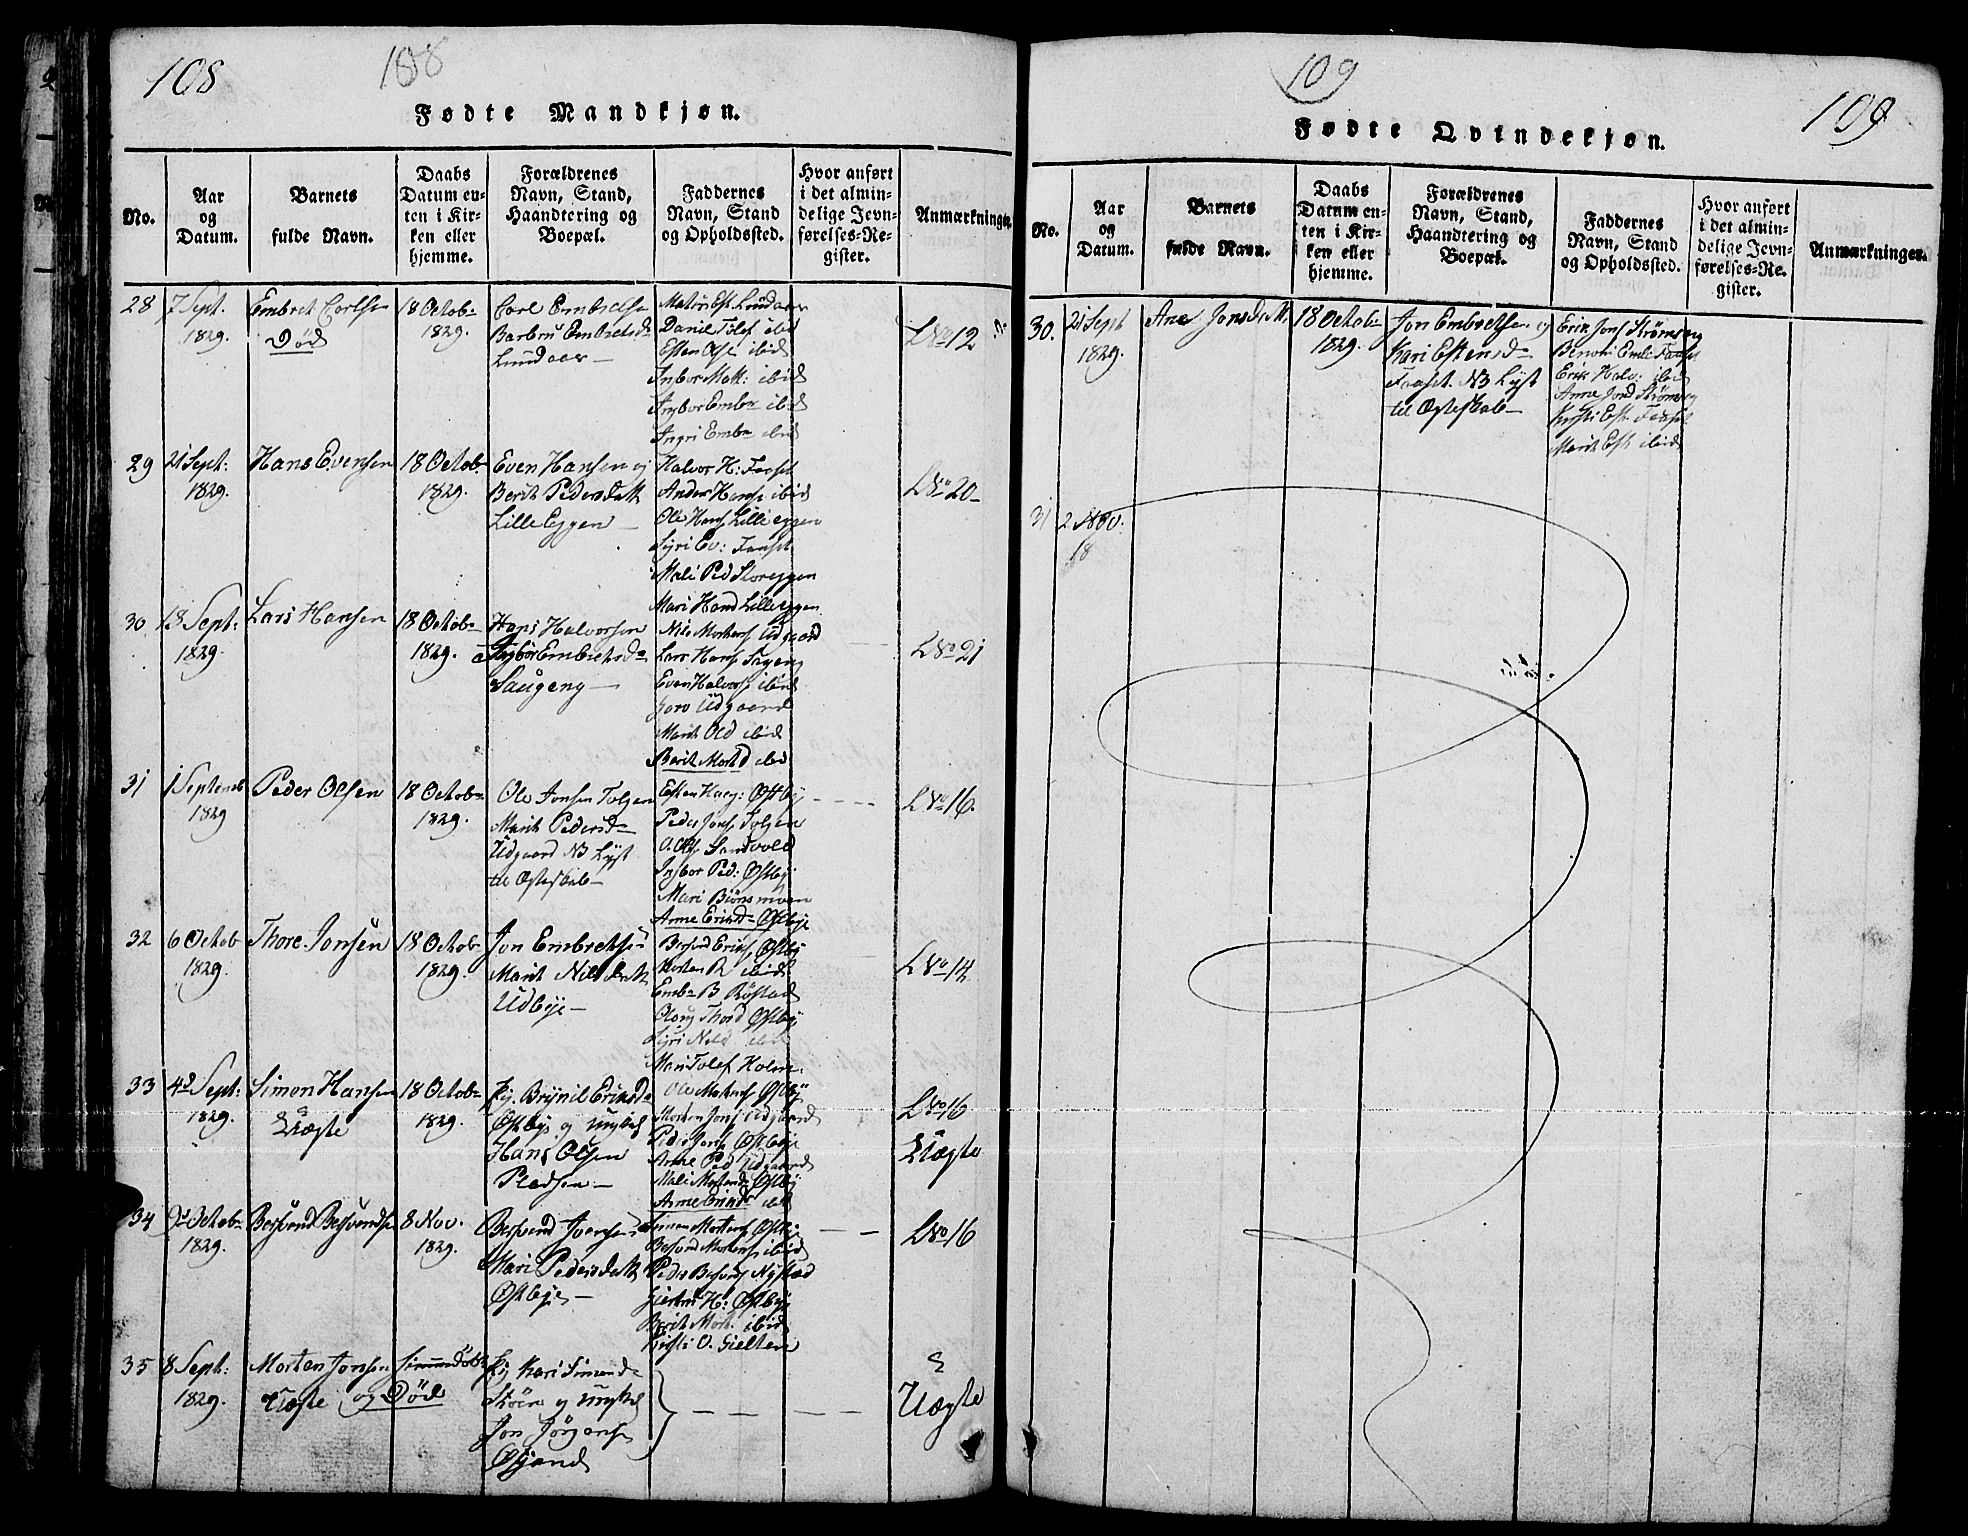 108
108
Fødte Mandkjøn.
No.
Aar og Datum.
Barnets fulde Navn.
Daabs Datum enten i Kirken eller hjemme.
Forældrenes Navn, Stand, Haandtering og Boepæl.
Faddernes Navn, Stand og Opholdssted.
Hvor anført i det almindelige Jevnførelses-Register.
Anmærkninger.
28
7 Sept. 1829.
Embret Carlsen
Død
18 Octob. 1829.
Carl Embretsen
Barbru Embretsd
Lundaer
Daniel Tolef ibid
Esten Olse ibid
Ingbor Matt: ibid
Ingbor Emb ibid
Ingri Emb ibid
L No 12
29
21 Sept: 1829.
Hans Evensen
18 Octob. 1829.
Even Hansen og
Berit Pedersdatt
Lille Eggen
Halvor H: Faaset
Anders Hans ibid
Ole Hans Lilleeggen
Siri Ev: Faaset
Mali Ped Storeggen
Mari Hansd Lilleeggen
L No 20
30
18 Sept: 1829
Lars Hansen
18 Octob. 1829.
Hans Halvorsen
Ingbor Embretsd
Saugeng
Nils Mortens Udgaard
Lars Hans Sageng
Even Halvors ibid
Goro Udgaard
Marit Old ibid
Berit Mortd ibid
L No 21
31
1 Septemb 1829
Peder Olsen
18 Octob. 1829.
Ole Jonsen Tolgen
Marit Pedersd
Udgaard NB Lyst
til Ægteskab
Esten Haag: Østby
Peder Jons Tolgen
Sandvold
Ingbor Ped: Østby
Mari Biørnsmoen
Anne Eriksd Østbye
L No 16.
32
6 Octob 1829.
Thore Jonsen
18 Octob. 1829.
Jon Embretsen
Marit Nilsdatt
Udbye
Besvend Eriks Østby
Morten B ibid
Emb B Røstad
Oloug Thord Østby
Siri Nild ibid
Mari Tolef Holm
L No 14
33
4d Sept. 1829.
Simon Hansen
Uægte
18 Octob. 1829.
Pig. Brynil Eriksd
Østbye og ungkal
Hans Olsen
Pladsen
Ole Mortens Østby
Morten Jons Udgaard
Peder Jons Østbye
Anne Ped Udgaard
Mali Mortensd Østby
Anne Eriksd ibid
L No 16
Uægte
34
9d Octob. 1829.
Besvend Besvends
8 Nov. 1829.
Besvend Joensen
Mari Pedersdatt
Østbye
Simen Mortens Østby
Besvend Mortens ibid
Peder Besvends Nystad
Giertru H: Østby
Berit Mort. ibid
Kirsti O. Gielten
L No 16
35
8 Sept: 1829.
Morten Jonsen
Uægte og Død
Pig Kari Simensd
Støen og ungkal
Jon Jørgens
Øgand
Uægte
109
109
Fødte Qvindekjøn.
No.
Aar og Datum.
Barnets fulde Navn.
Daabs Datum enten i Kirken eller hjemme.
Forældrenes Navn, Stand, Haandtering og Boepæl.
Faddernes Navn, Stand og Opholdssted.
Hvor anført i det almindelige Jevnførelses-Register.
Anmærkninger.
30.
21 Sept 1829.
Ane Jonsdatt.
18 Octob. 1829.
Jon Embretsen og
Kari Estensd
Faaset. NB Lyst
til Ægteskab
Erik Jons Strømseng
Benoni Emb: Faaset
Erik Halv: ibid
Anne Jond Strømseng
Kirsti Est. Faaset
Marit Est ibid
31
2 Nov.
18